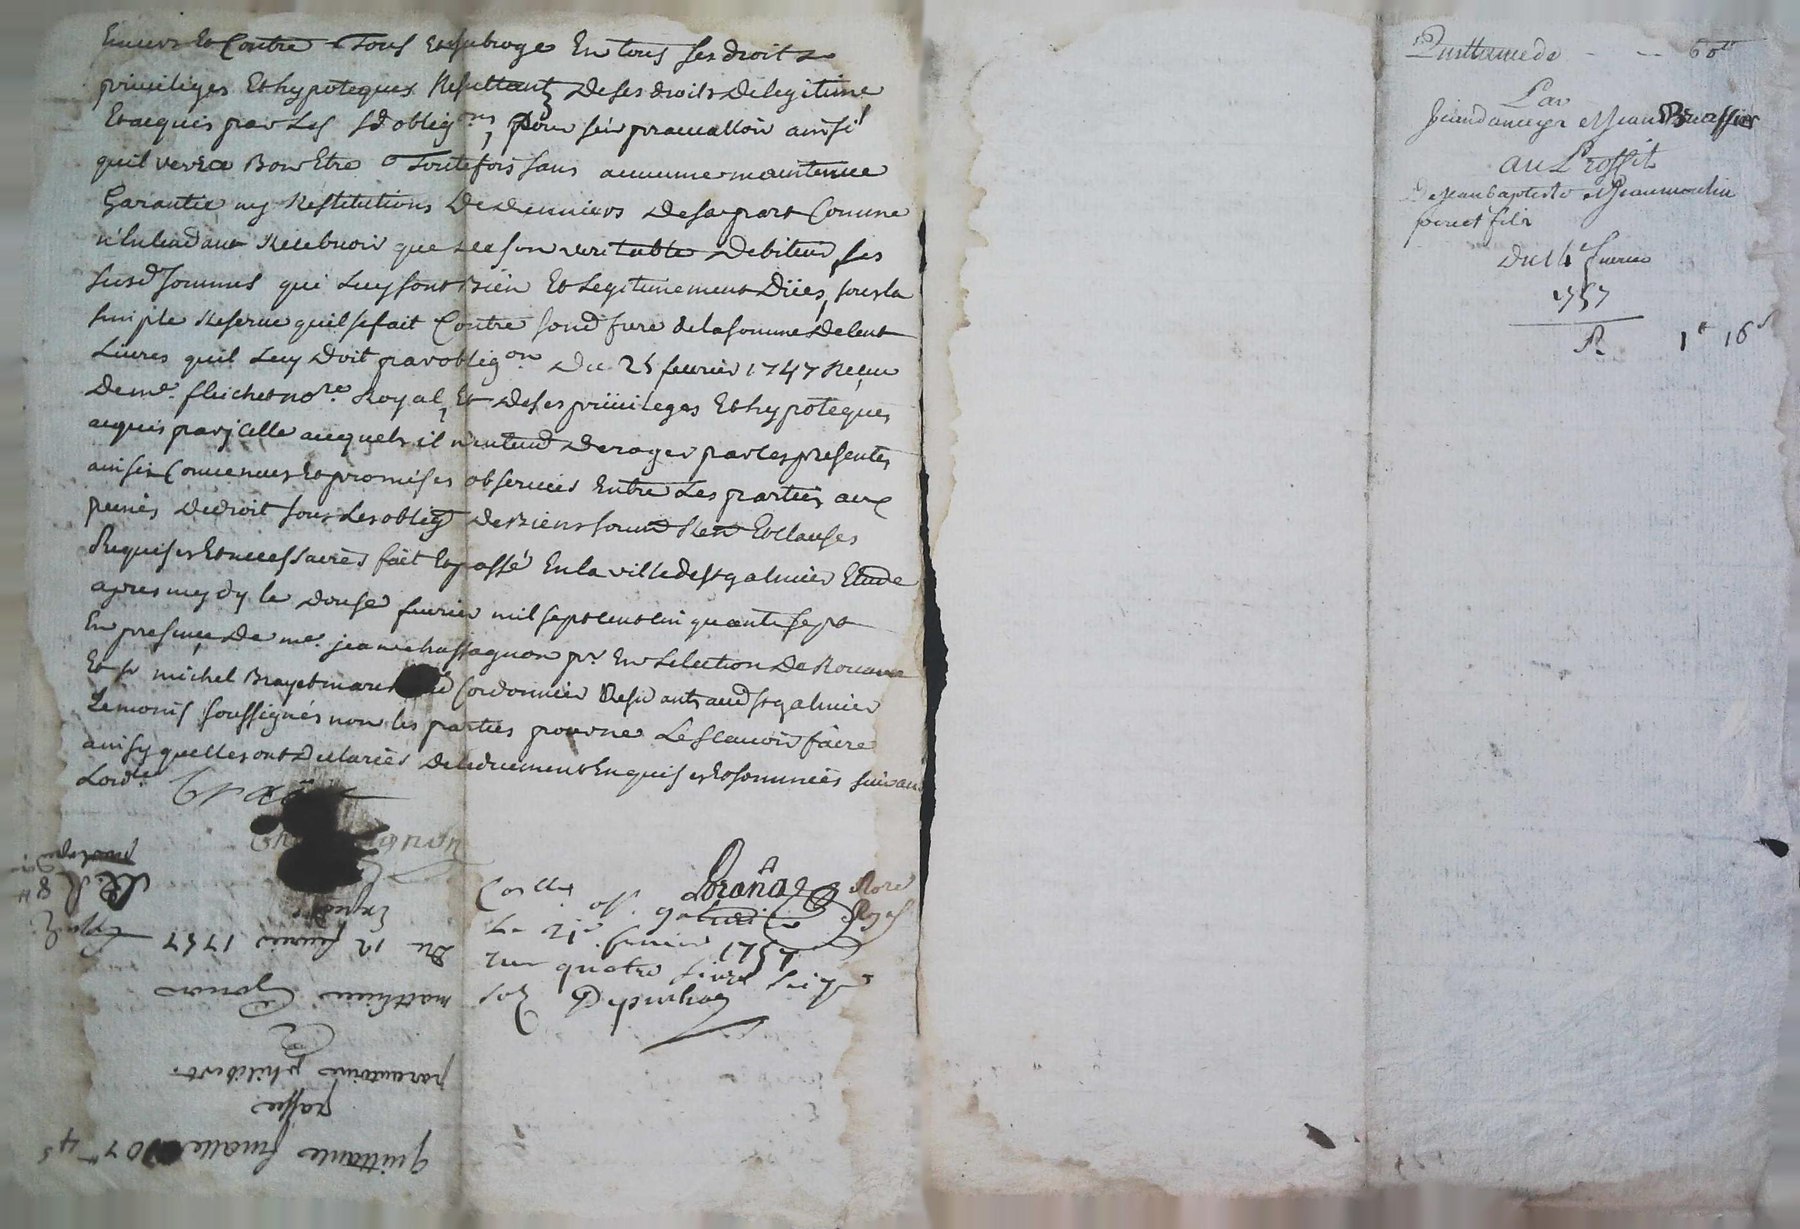 Envers Et Contre Tous Et subroge En tous ses droits
privileges Et hypoteques Resultant De ses droits De legitime
Et acquis par Les sd oblig.ons pour s'en prevalloir ainsi
quil verra Bon Etre Toutefois sans aucune maintenue
Garantie ny Restitutions De Deniers De sa part Comme
n'Entendant Recebvoir que de son veritable Debiteur, ses
susd sommes qui Luy sont Bien Et Legitimement Dües, sous la
simple Reserve quil se fait Contre sond frere de la somme De Cent
Livres quil Luy Doit par oblig.on Du 25 fevrier 1747 Reçue
De me. flechet no.re Royal, Et De ses privileges Et hypoteques
acquis par jcelle auxquels il n'entend Deroger par les presentes
ainsi Convenues Et promises observer Entre Les parties aux
peines De droit sous Les oblig De Biens soum Ren Et Clauses
Requises Et necessaires fait Et passé En la ville de st galmier Etude
apres mydy le Douse fevrier mil sept cent cinquante sept
En presence De me. jean chassagnon pr. En Lelection De Roanne
Et sr michel Brayet Cordonnier Residants aud st galmier
Temoins soussignés non les parties pour ne Le scavoir faire
ainsy quelles ont Declarées De ce duement Enquises Et sommées suivant
Lord.ce
Con.llé
Royal
Le 21e. fevrier 1757
Reçu quatre Livres seize
sols
Expedié
Du 12 fevrier 1757
matthieu
par antoine philibert
passée
quittance finalle 4s
Quittance de 60tt
Par
et jean Brassier
au Proffit
De jean baptiste et jean moulin
pere et fils
Du 14 fevrier
1757
R. 1tt 16s